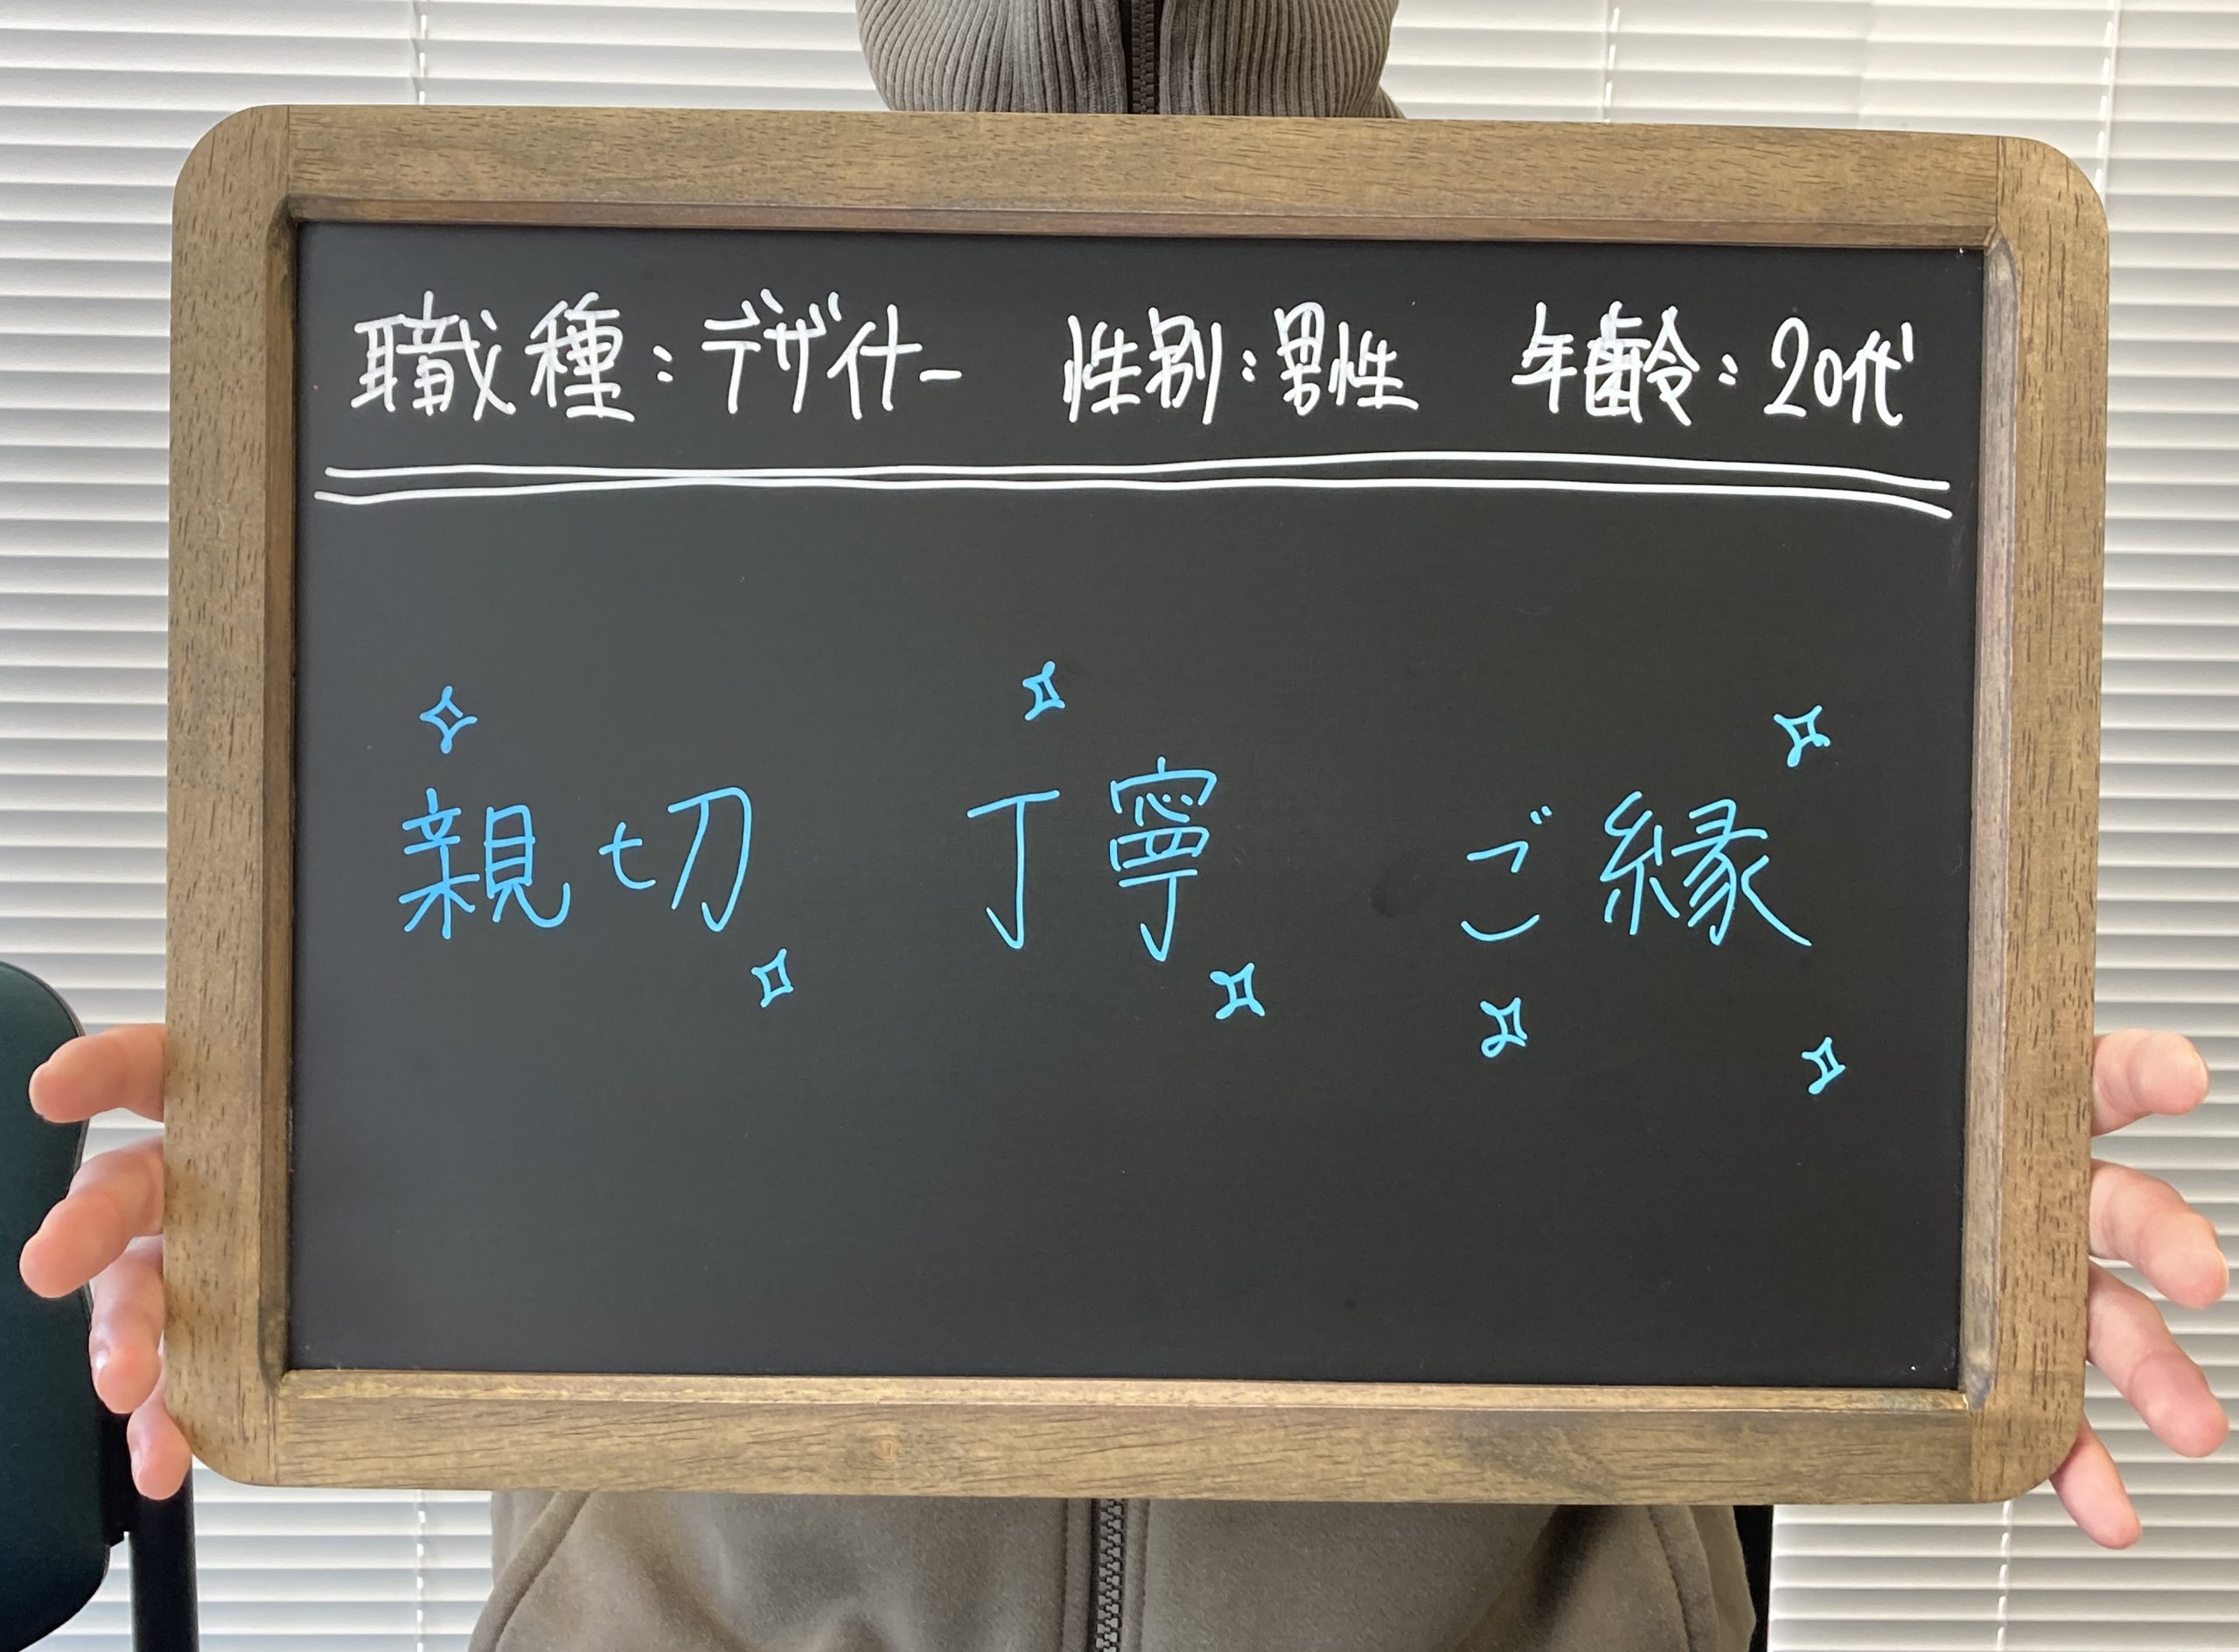 職種：デザイナー 性別：男性 年齢：20代
親切 丁寧 ご縁